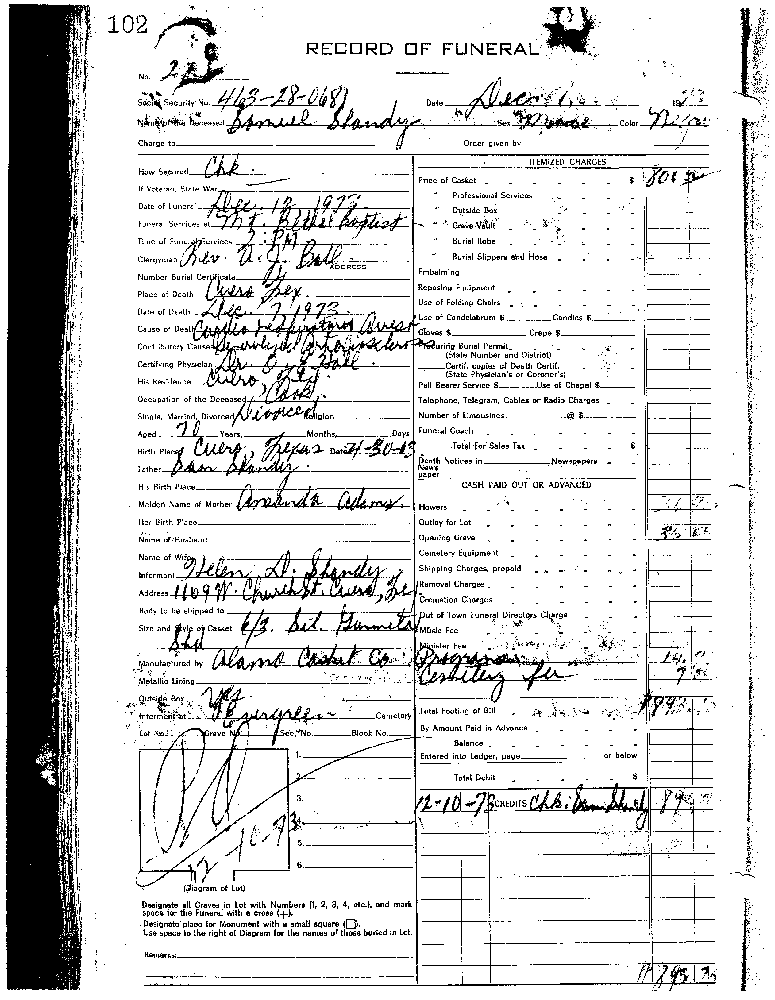 102
RECORD OF FUNERAL
No. 2
Social Security No. 463-28-0681 Date Dec. 19
Name of the Deceased Samuel Shandy Sex Color
Charge to Order given by
How Secured Chk.
If Veteran, State War
Date of Funeral Dec. 12 1973
Funeral Services at Mt. Bethel Baptist
Time of Funeral Services 2:PM
Clergyman Rev. A. J. Ball
ADDRESS
Number Burial Certificate
Place of Death Cuero Tex.
Date of Death Dec. 7, 1973
Cause of Death Cardio respiratory Arrest
Contributory Cause Generalized Arteriosclerosis
Certifying Physician Dr.
His Residence Cuero, Tex.
Occupation of the Deceased Cook
Single, Married, Divorced Divorced Religion
Aged 70 Years, Months, Days
Birth Place Cuero, Texas Date
Father Sam Shandy
His Birth Place
Maiden Name of Mother Amanda Adams.
Her Birth Place
Name of Husband
Name of Wife
Informant Helen D. Shandy
Address 1109 W. Church St. Cuero, Tex
Body to be shipped to
Size and Style of Casket 6/3 Sil.
Shd
Manufactured by Alamo Casket Co
Metallic Lining
Outside Box Yes
Interment at Evergreen Cemetery
Lot No. Grave No. Sec. No. Block No.
1.
2.
3.
4.
5.
6.
Pd
12-10-73
(Diagram of Lot)
Designate all Graves in Lot with Numbers (1, 2, 3, 4, etc.), and mark
space for the Funeral with a cross (+).
Designate place for Monument with a small square (☐).
Use space to the right of Diagram for the names of those buried in Lot.
Remarks:
ITEMIZED CHARGES
Price of Casket $ 800
" Professional Services
" Outside Box
" Grave Vault
" Burial Robe
" Burial Slippers and Hose
Embalming
Reposing Equipment
Use of Folding Chairs
Use of Candelabrum $ Candles $
Gloves $ Crepe $
Procuring Burial Permit
(State Number and District)
Certif. copies of Death Certif.
(State Physician's or Coroner's)
Pall Bearer Service $ Use of Chapel $
Telephone, Telegram, Cables or Radio Charges
Number of Limousines @ $
Funeral Coach
Total For Sales Tax $
Death Notices in Newspapers
News
paper
CASH PAID OUT OR ADVANCED
Flowers
Outlay for Lot
Opening Grave
Cemetery Equipment
Shipping Charges, prepaid
Removal Charges
Cremation Charges
Out of Town Funeral Directors Charge
Music Fee
Minister Fee
Programs
Cemetery fee
Total Footing of Bill
By Amount Paid in Advance
Balance
Entered into Ledger, page or below
Total Debit $
12-10-73 CREDITS Chk: Sam Shandy